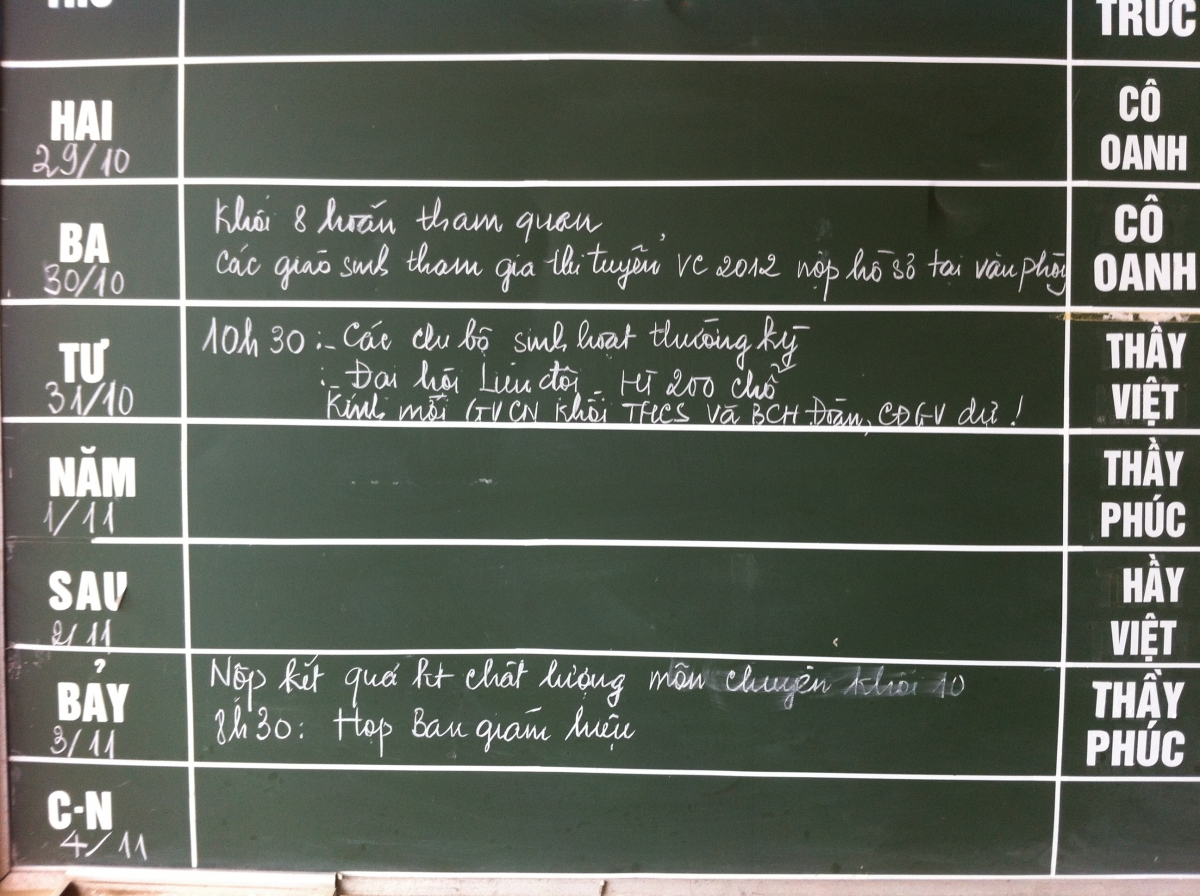 THỨ
TRỰC
HAI
29/10
CÔ
OANH
BA
30/10
Khối 8 hoãn tham quan
Các giáo sinh tham gia thi tuyển VC 2012 nộp hồ sơ tại văn phòng
CÔ
OANH
TƯ
31/10
10h 30 :- Các chi bộ sinh hoạt thường kỳ
:- Đại hội Liên đội _ HT 200 chỗ
Kính mời GVCN khối THCS và BCH Đoàn, CĐGV dự !
THẦY
VIỆT
NĂM
1/11
THẦY
PHÚC
SAU
2/11
HẦY
VIỆT
BẢY
3/11
Nộp kết quả kt chất lượng môn chuyên khối 10
8h30: Họp Ban giám hiệu
THẦY
PHÚC
C-N
4/11